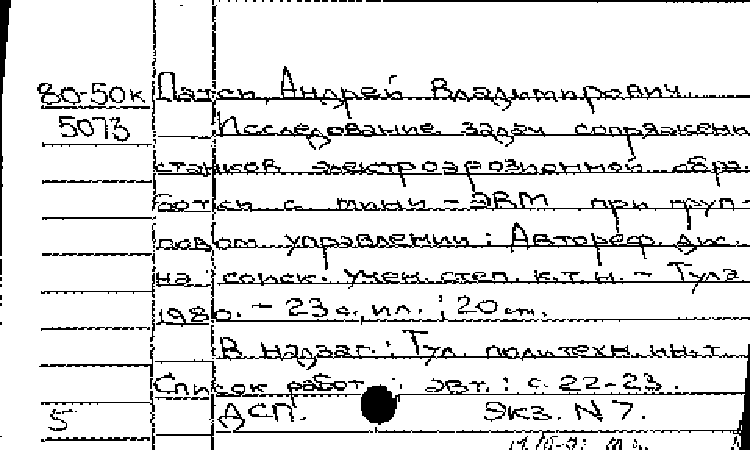 80-50к Патси, Андрей Владимирович
5073 Исследование задач сопряжени
станков электроэрозионной обра
ботки с мини-ЭВМ при груп-
повом управлении: Автореф. дис.
на соиск. учен. степ. к.т.н. - Тула
1980. - 23 с., ил.; 20 см.
В надзаг.: Тул. политехн. ин.т.
Список работ авт.: с. 22-23.
5 ДСП. Экз. N 7.